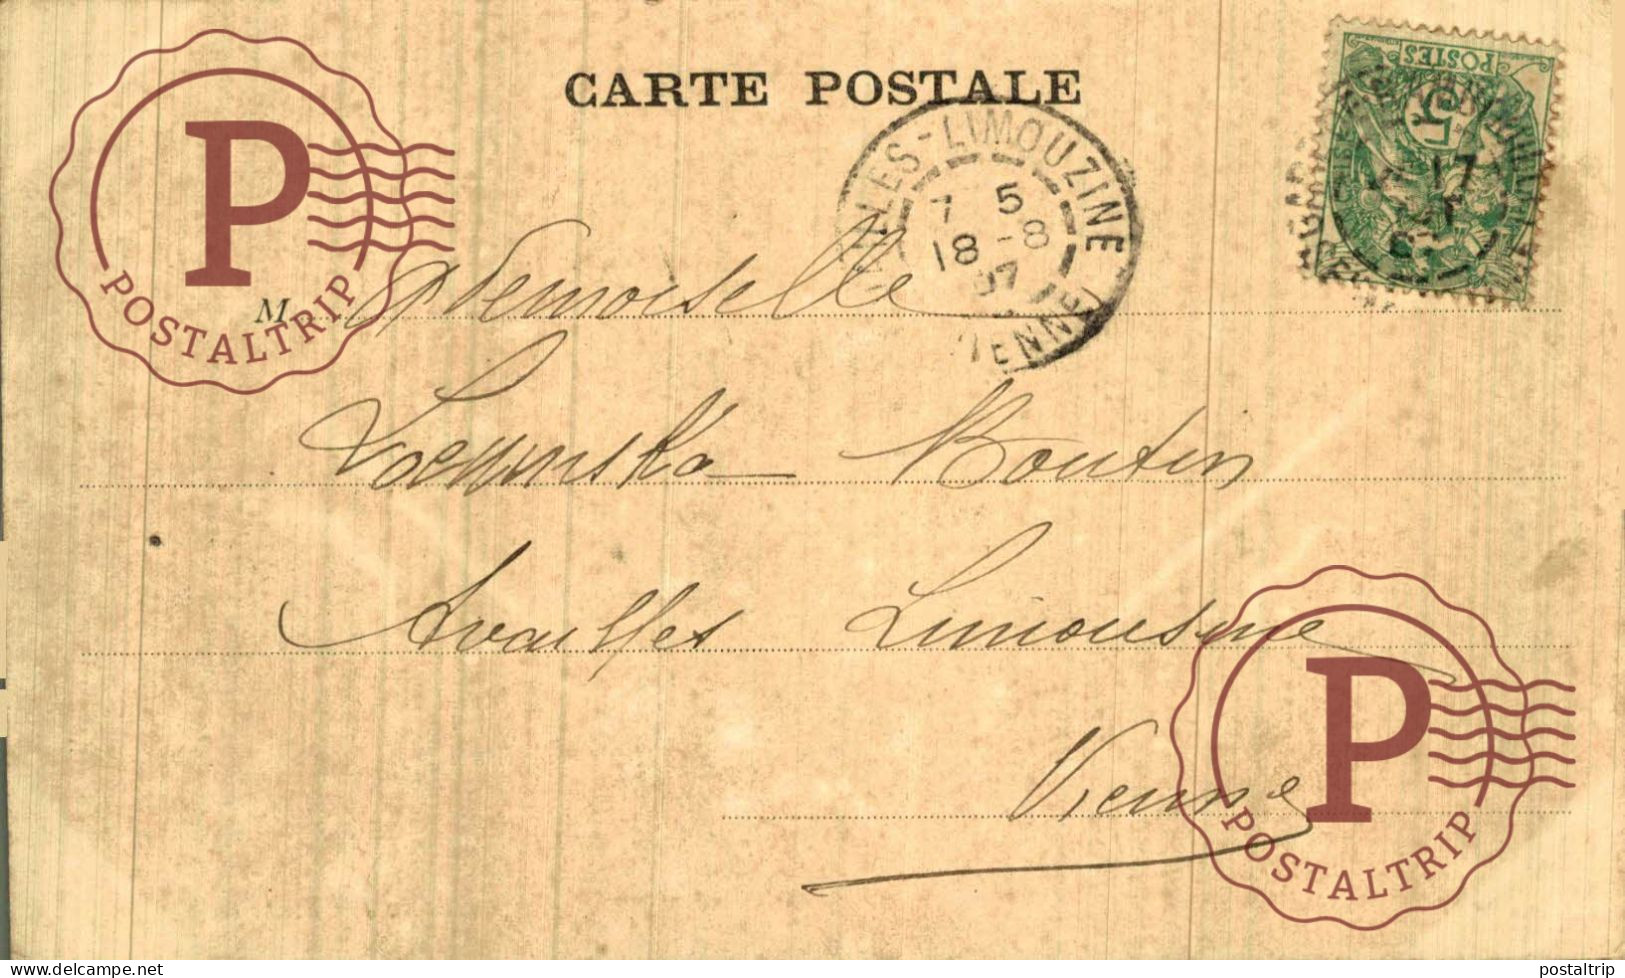 CARTE POSTALE
POSTES
5
17
AVAILLES-LIMOUZINE
7 5
18-8
07
VIENNE
M ademoiselle
Boutin
Availles Limousine
Vienne
P
POSTALTRIP
P
POSTALTRIP
www.delcampe.net
postaltrip